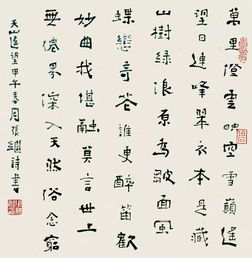 萬里澄雲映空雪巔遙
望日連峰翠衣本是藏
山樹綠浪原為皺面風
蝶戀奇花誰更醉笛歡
妙曲我堪融莫言世上
無僊界深入天然俗念窮
天山遙望甲午春月張繼詩書